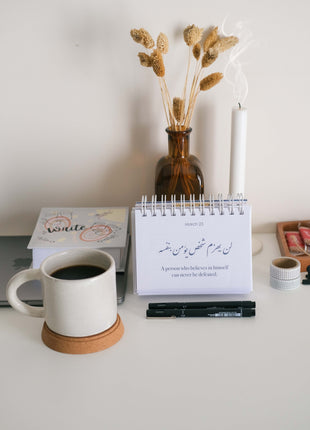 MARCH 23
لن يهزم شخص يؤمن بنفسه
A person who believes in himself
can never be defeated.
write